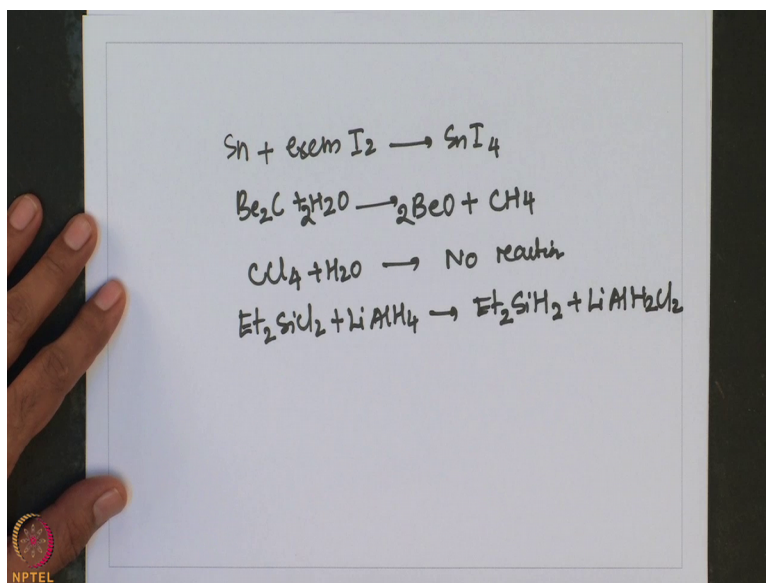 Sn + excess I2 → SnI4
Be2C + 2H2O → 2BeO + CH4
CCl4 + H2O → No reaction
Et2SiCl2 + LiAlH4 → Et2SiH2 + LiAlH2Cl2
NPTEL